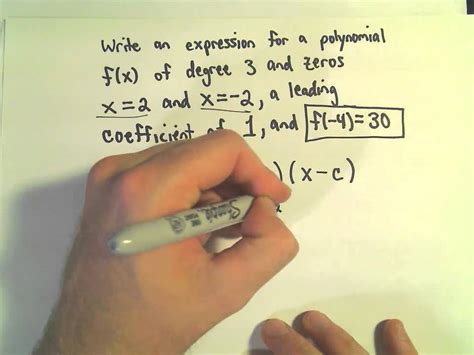 Write an expression for a polynomial
f(x) of degree 3 and zeros
x=2 and x=-2, a leading
coefficient of 1, and f(-4)=30
)(x-c)
Sharpie